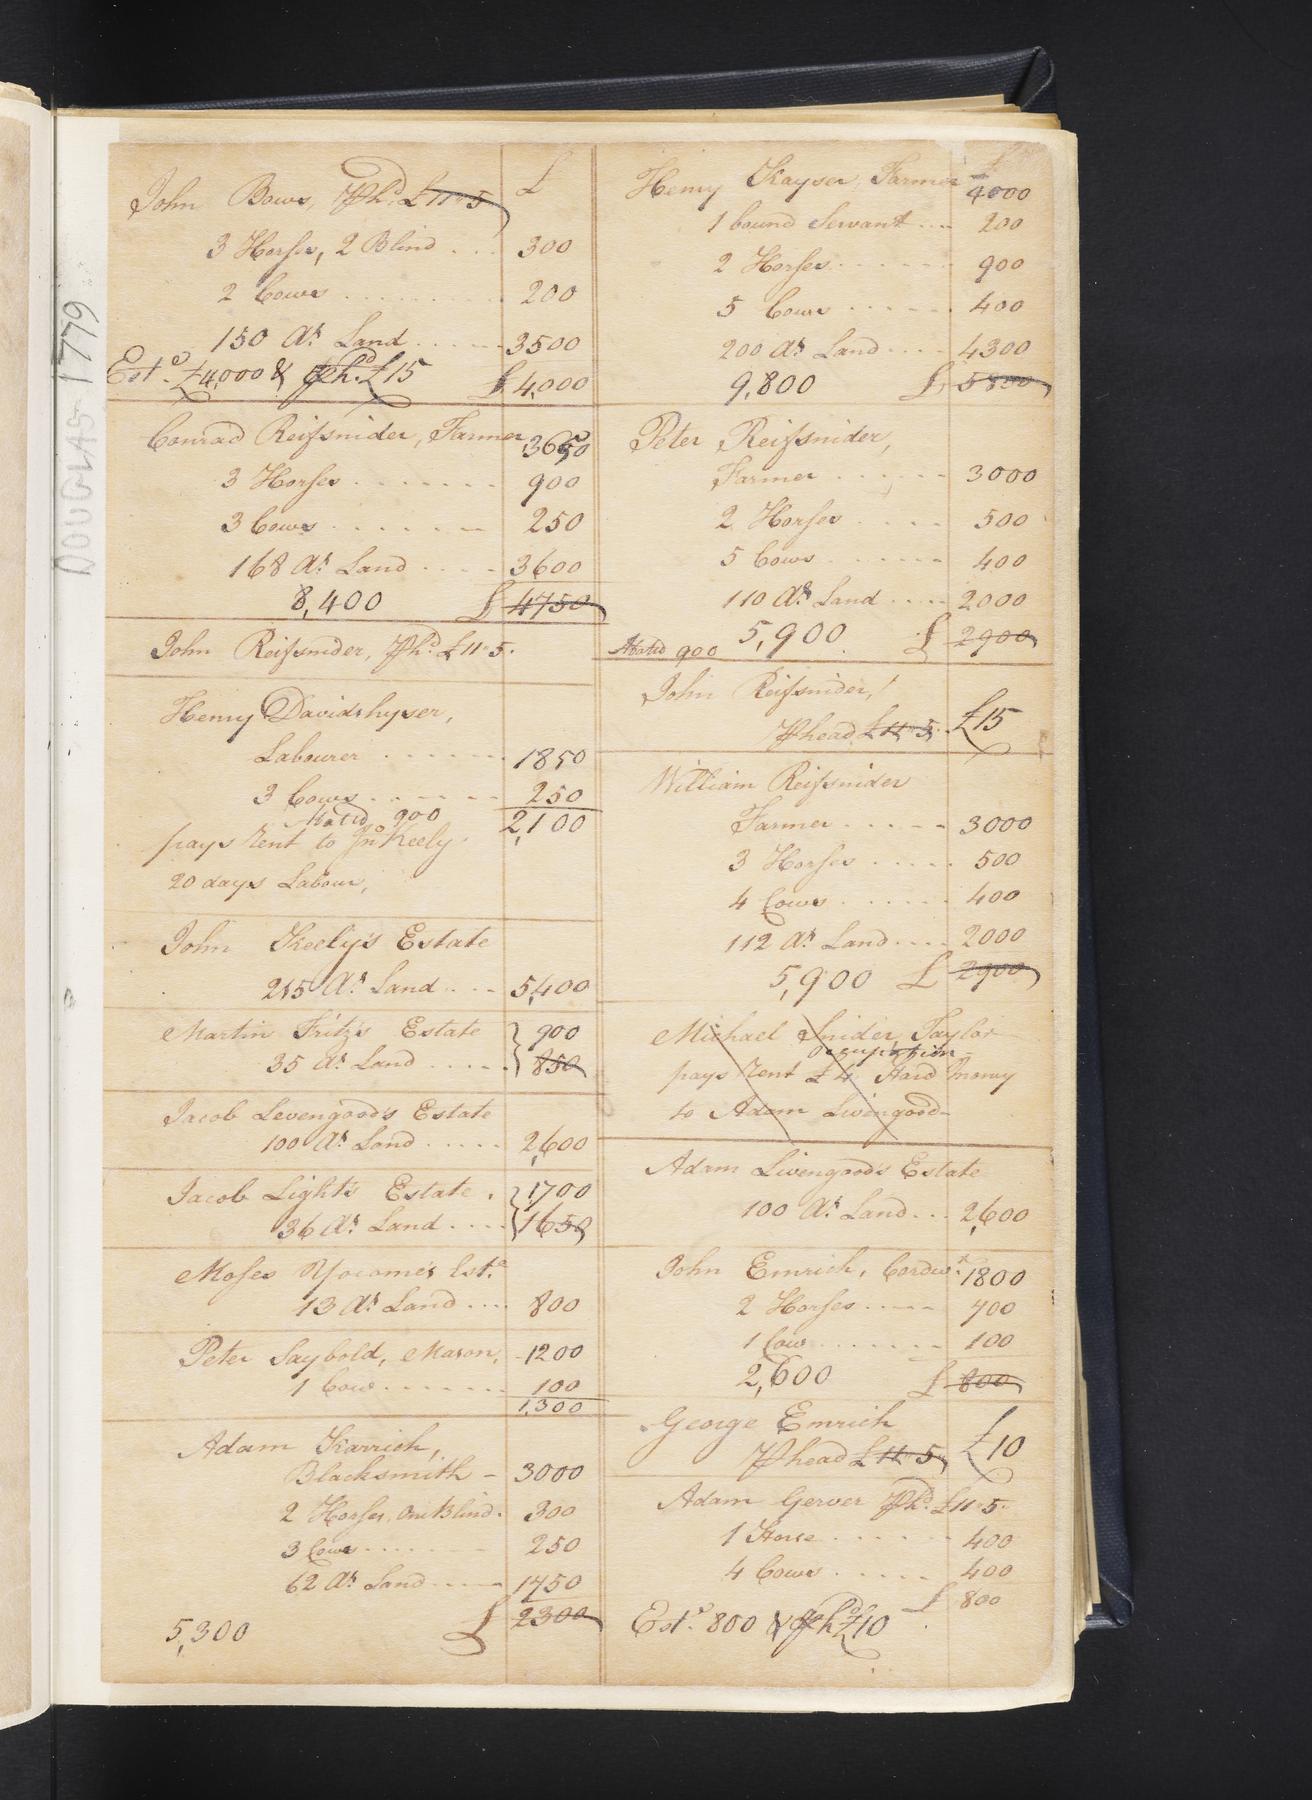 DOUGLAS 1779
John Bows, ⅌hd. £11"5 £
3 Horses, 2 Blind .... 300
2 Cows .......... 200
150 As Land ...... 3500
Esto. £4,000 & ⅌hd. £15 £4,000
Conrad Reifsnider, Farmer 3650
3 Horses ........ 900
3 Cows ........ 250
168 As Land ..... 3600
8,400 £ 4750
John Reifsnider, ⅌hd. £11"5.
Henry Davidshyser,
Labourer ...... 1850
3 Cows ...... 250
Abatd. 900 2,100
pays Rent to Jno Keely
20 days Labour,
John Keely's Estate
215 As Land .... 5,400
Martin Fritz's Estate 900
35 As Land ..... 850
Jacob Levengood's Estate
100 As Land ..... 2,600
Jacob Light's Estate. 1,700
36 As Land .... 1650
Moses Yocome's Este
13 As Land .... 800
Peter Saybold, Mason, 1200
1 Cow ....... 100
1,300
Adam Karrich,
Blacksmith - 3000
2 Horses, One Blind. 300
3 Cows ....... 250
62 As Land ..... 1750
5,300 £ 2300
Henry Kayser, Farmer £ 4000
1 bound Servant .... 200
2 Horses ....... 900
5 Cows ...... 400
200 As Land .... 4300
9,800 £ 5800
Peter Reifsnider,
Farmer ...... 3000
2 Horses ..... 500
5 Cows ....... 400
110 As Land .... 2000
Abatd 900 5,900 £ 2900
John Reifsnider,
⅌head £11"5. £15
William Reifsnider
Farmer ..... 3000
3 Horses ..... 500
4 Cows ...... 400
112 As Land .... 2000
5,900 £ 2900
Michael Snider, Taylor
occupation
pays Rent £4 Hard Money
to Adam Livengood
Adam Livengood's Estate
100 As Land ... 2,600
John Emrich, Cordwr. 1800
2 Horses ..... 700
1 Cow ....... 100
2,600 £ 800
George Emrich
⅌head £11"5, £10
Adam Gerver ⅌hd. £11"5.
1 Horse ...... 400
4 Cows ...... 400
£ 800
Esto. 800 & ⅌hd £10